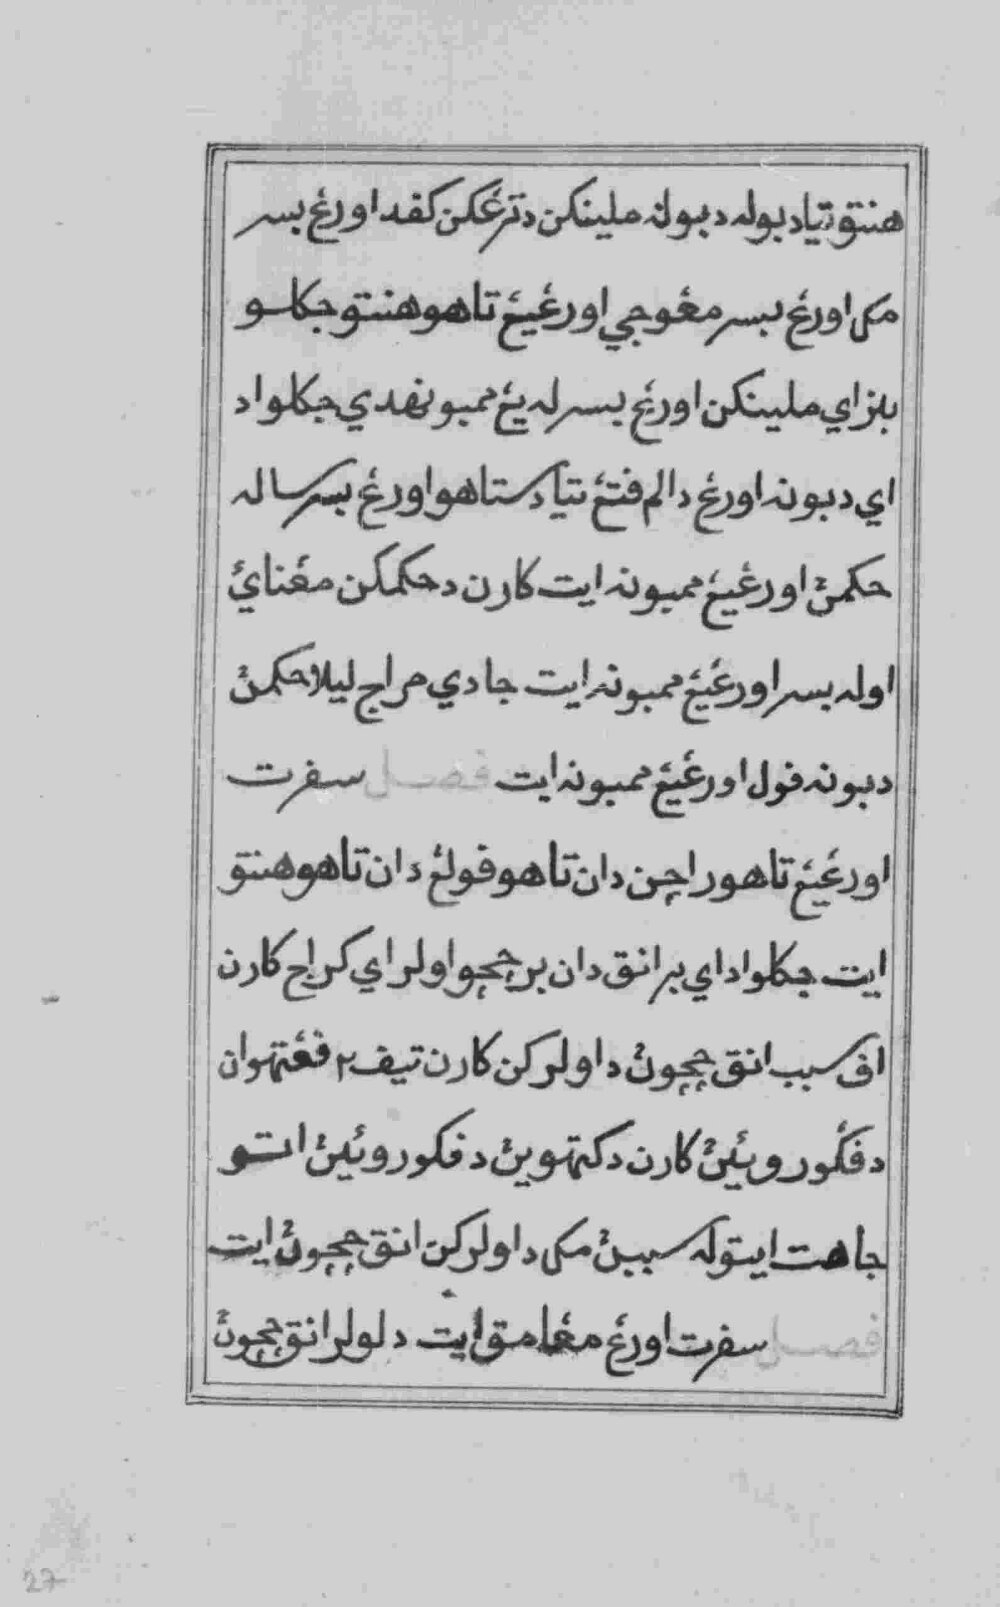 هنتو تياد بوله دبوله ملينكن دترڠكن كفد اورڠ بسر
مك اورڠ بسر مڠوجي اورڠيڠ تاهو هنتو جكلو
بلزاي ملينكن اورڠ بسر له يڠ ممبونهدي جكلو اد
اي دبونه اورڠ دالم فتڠ تياد ستاهو اورڠ بسر ساله
حكمڽ اورڠيڠ ممبونه ايت كارن دحكمكن مڠناي
اوله بسر اورڠيڠ ممبونه ايت جادي مراج ليلا حكمڽ
دبونه فول اورڠيڠ ممبونه ايت فصل سفرت
اورڠيڠ تاهو راچن دان تاهو فولڠ دان تاهو هنتو
ايت جكلو اد اي برانق دان برچچو اولر اي كراج كارن
اف سبب انق چچوڽ داولركن كارن تيف٢ فڠتهوان
دفكوروئيڽ كارن دكتهوين دفكوروئيڽ اتو
جاهت ايتوله سببڽ مك داولركن انق چچوڽ ايت
فصل سفرت اورڠ مڠامق ايت دلولر انق چچوڽ
27